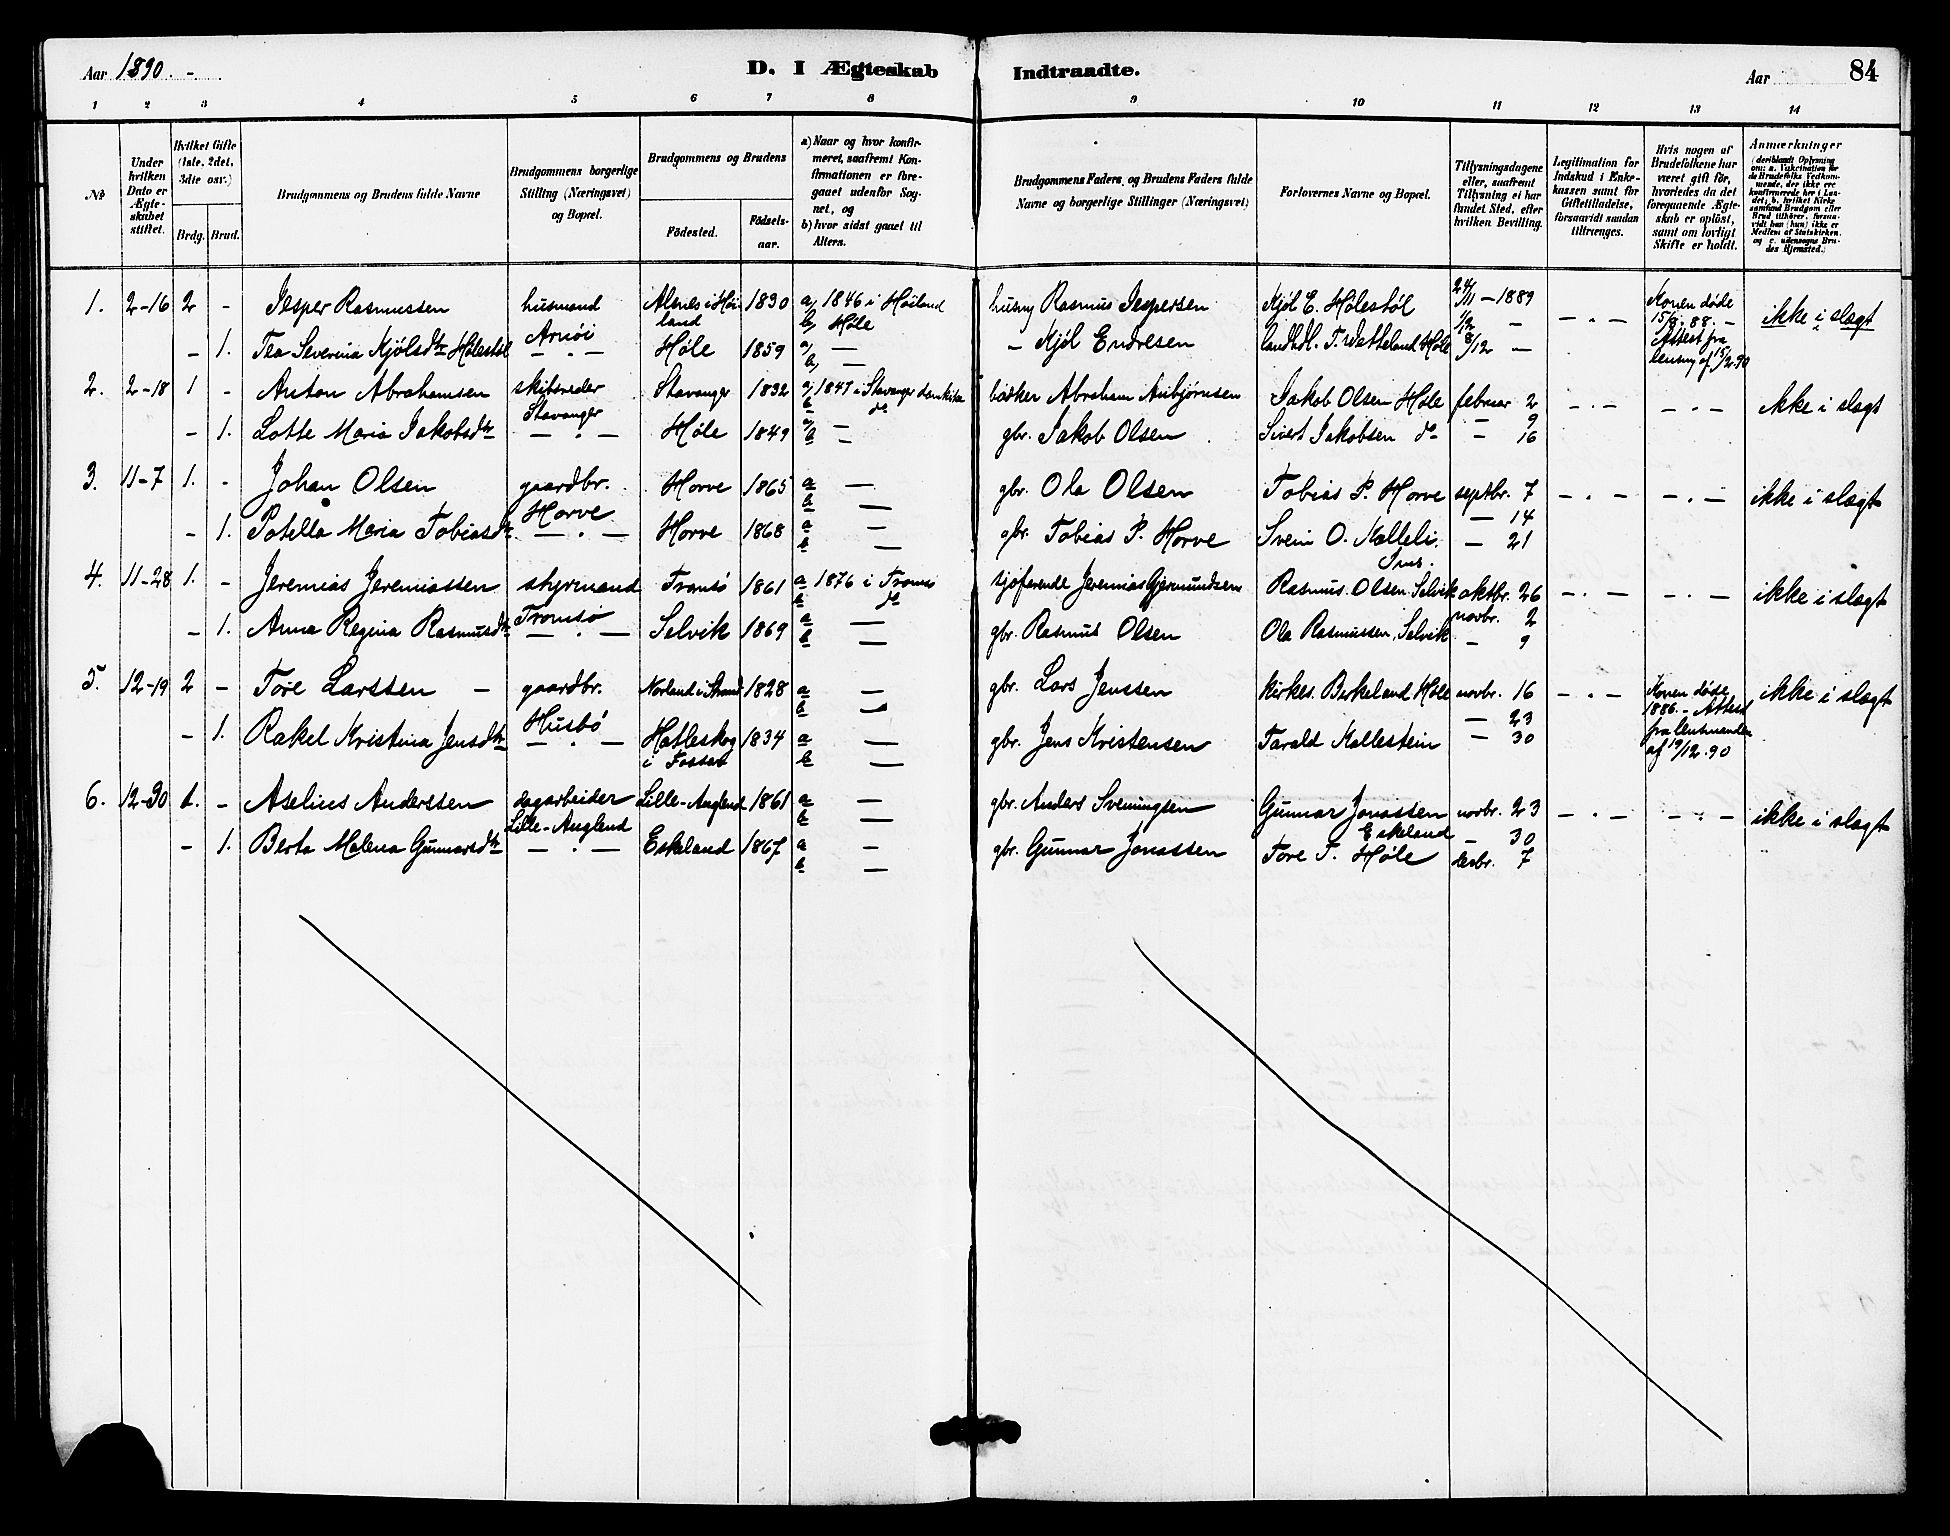 Aar 1890. - D. I Ægteskab Indtraadte. Aar 84
1 2 3 4 5 6 7 8 9 10 11 12 13 14
№
Under hvilken Dato er Ægteskabet stiftet.
Hvilket Gifte (1ste, 2det, 3die osv.)
Brdg. Brud.
Brudgommens og Brudens fulde Navne
Brudgommens borgerlige Stilling (Næringsvei) og Bopæl.
Brudgommens og Brudens
Födested.
Födsels-aar.
a) Naar og hvor konfir-
meret, saafremt Kon-
firmationen er fore-
gaaet udenfor Sog-
net, og
b) hvor sidst gaaet til
Alters.
Brudgommens Faders, og Brudens Faders fulde
Navne og borgerlige Stillinger (Næringsvei)
Forlovernes Navne og Bopæl.
Tillysningsdagene
eller, saafremt
Tillysning ei har
fundet Sted, efter
hvilken Bevilling.
Legitimation for
Indskud i Enke-
kassen samt for
Giftetilladelse,
forsaavidt saadan
tiltrænges.
Hvis nogen af
Brudefolkene har
været gift för,
hvorledes da det
foregaaende Ægte-
skab er oplöst,
samt om lovligt
Skifte er holdt.
Anmærkninger
1. 2-16 2 - Jesper Rasmussen husmand Alsnes i Höi- 1830 a, 1846 i Höiland husm Rasmus Jespersen Kjöl E. Hölestöl 24/11 - 1889 Konen döde ikke i slægt
Arnöi land b, Höle 1/12 - - . - 15/8. 88. -
- 1. Tea Severina Kjölsdtr Hölestöl - . - Höle 1859 a, - - Kjöl Endresen landhdl. T. Vatteland Höle 8/12 - Attest fra
b, - lensm af 15/2.90
2. 2-18 1 - Anton Abrahamsen skibsreder Stavanger 1832 a, 1847 i Stavanger domkirke Abraham Asbjörnsen Jakob Olsen Höle februar 2 - . - - . - ikke i slægt
Stavanger b do - 9
- 1. Lotte Maria Jakobsdtr - . - Höle 1849 a - gbr. Jakob Olsen Sivert Jakobsen do - 16
b -
3. 11-7 1. - Johan Olsen gaardbr. Horve 1865 a - gbr. Ola Olsen Tobias P. Horve septbr. 7 - . - - . - ikke i slægt
Horve b - - 14
- 1. Maria Tobiasdtr - . - Horve 1868 a - gbr. Tobias P. Horve Svein O. Malleli. - 21
b -
4. 11-28 1. - Jeremias Jeremiassen styrmand Tromsö 1861 a 1876 i Tromsö sjöfarende Jeremias Gjermundsen Rasmus Olsen Selvik oktbr. 26 - . - - . - ikke i slægt
Tromsö b do novbr. 2
- 1. Anna Regina Rasmusdtr - . - Selvik 1869 a - gbr. Rasmus Olsen Ola Rasmussen, Selvik - 9
b -
5. 12-19 2 - Tore Larssen - gaardbr. Norland i Strand 1828 a - gbr. Lars Jenssen kirkes. Birkeland Höle novbr. 16 - . - Konen döde ikke i slægt
Husbö b - - 23 1886. - Attest
- 1. Rakel Kristina Jensdtr - . - Hatleskog 1834 a - gbr. Jens Kristensen Tarald Mallestein - 30 fra lensmanden
i Fossan b - af 19/12.90
6. 12-30 1. - Aselius Anderssen dagarbeider Lille-Augland 1861 a - gbr. Anders Sveningsen Gunnar Jonassen novbr. 23 - . - - . - ikke i slægt
Lille-Augland b - Eskeland - 30
- 1. Berta Malena Gunnarsdtr - . - Eskeland 1867 a - gbr. Gunnar Jonassen Tore T. Höle desbr. 7
b -